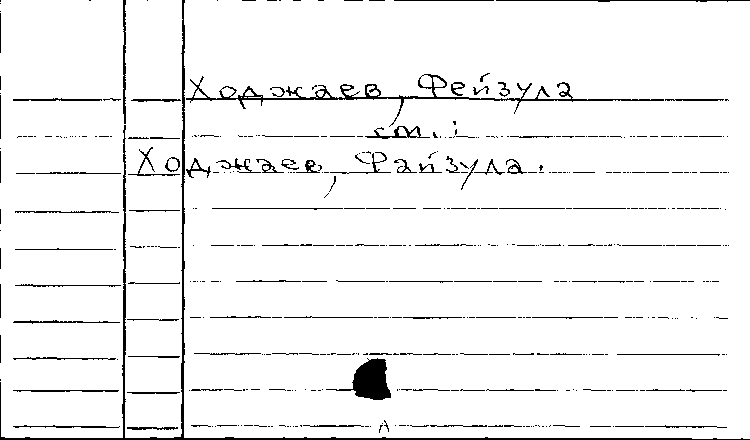 Ходжаев, Фейзула
см.:
Ходжаев, Файзула.